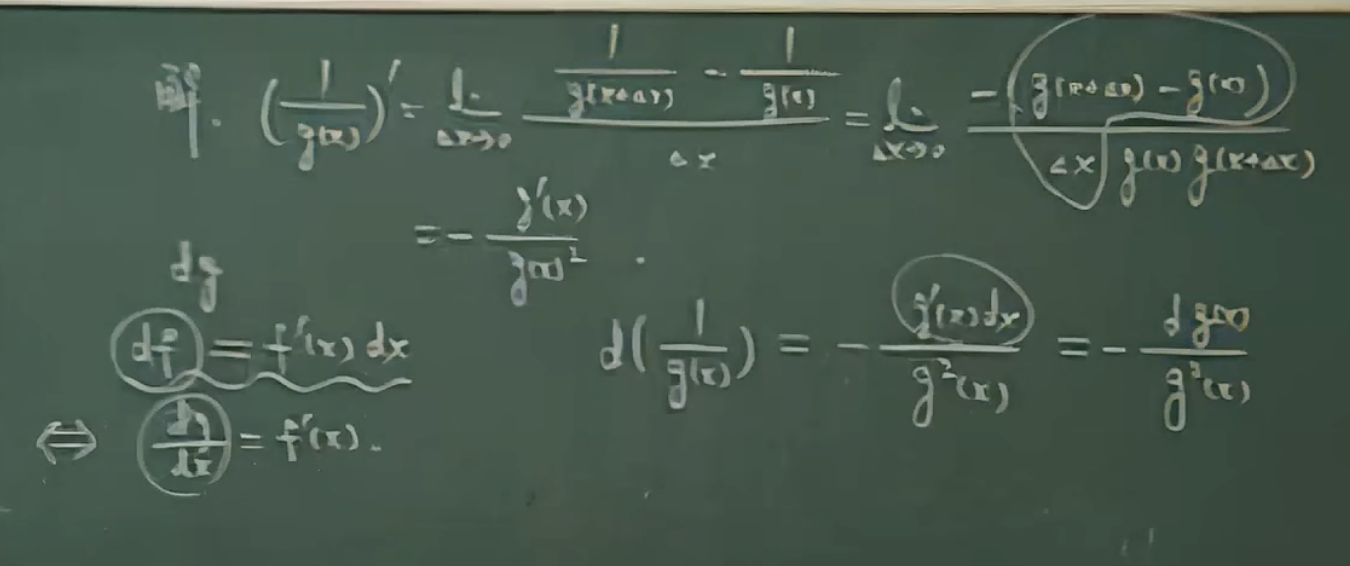 (1/g(x))' = lim Δx→0 (1/g(x+Δx) - 1/g(x))/Δx = lim Δx→0 -(g(x+Δx) - g(x))/(Δx g(x) g(x+Δx))
= - g'(x)/g(x)² .
dy
df = f'(x) dx
d(1/g(x)) = - g'(x)dx/g²(x) = - d g(x)/g²(x)
⇔ dy/dx = f'(x).